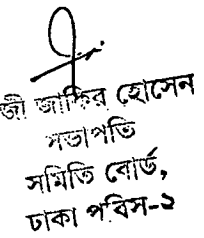 জী জাকির হোসেন
সভাপতি
সমিতি বোর্ড,
ঢাকা পবিস-২